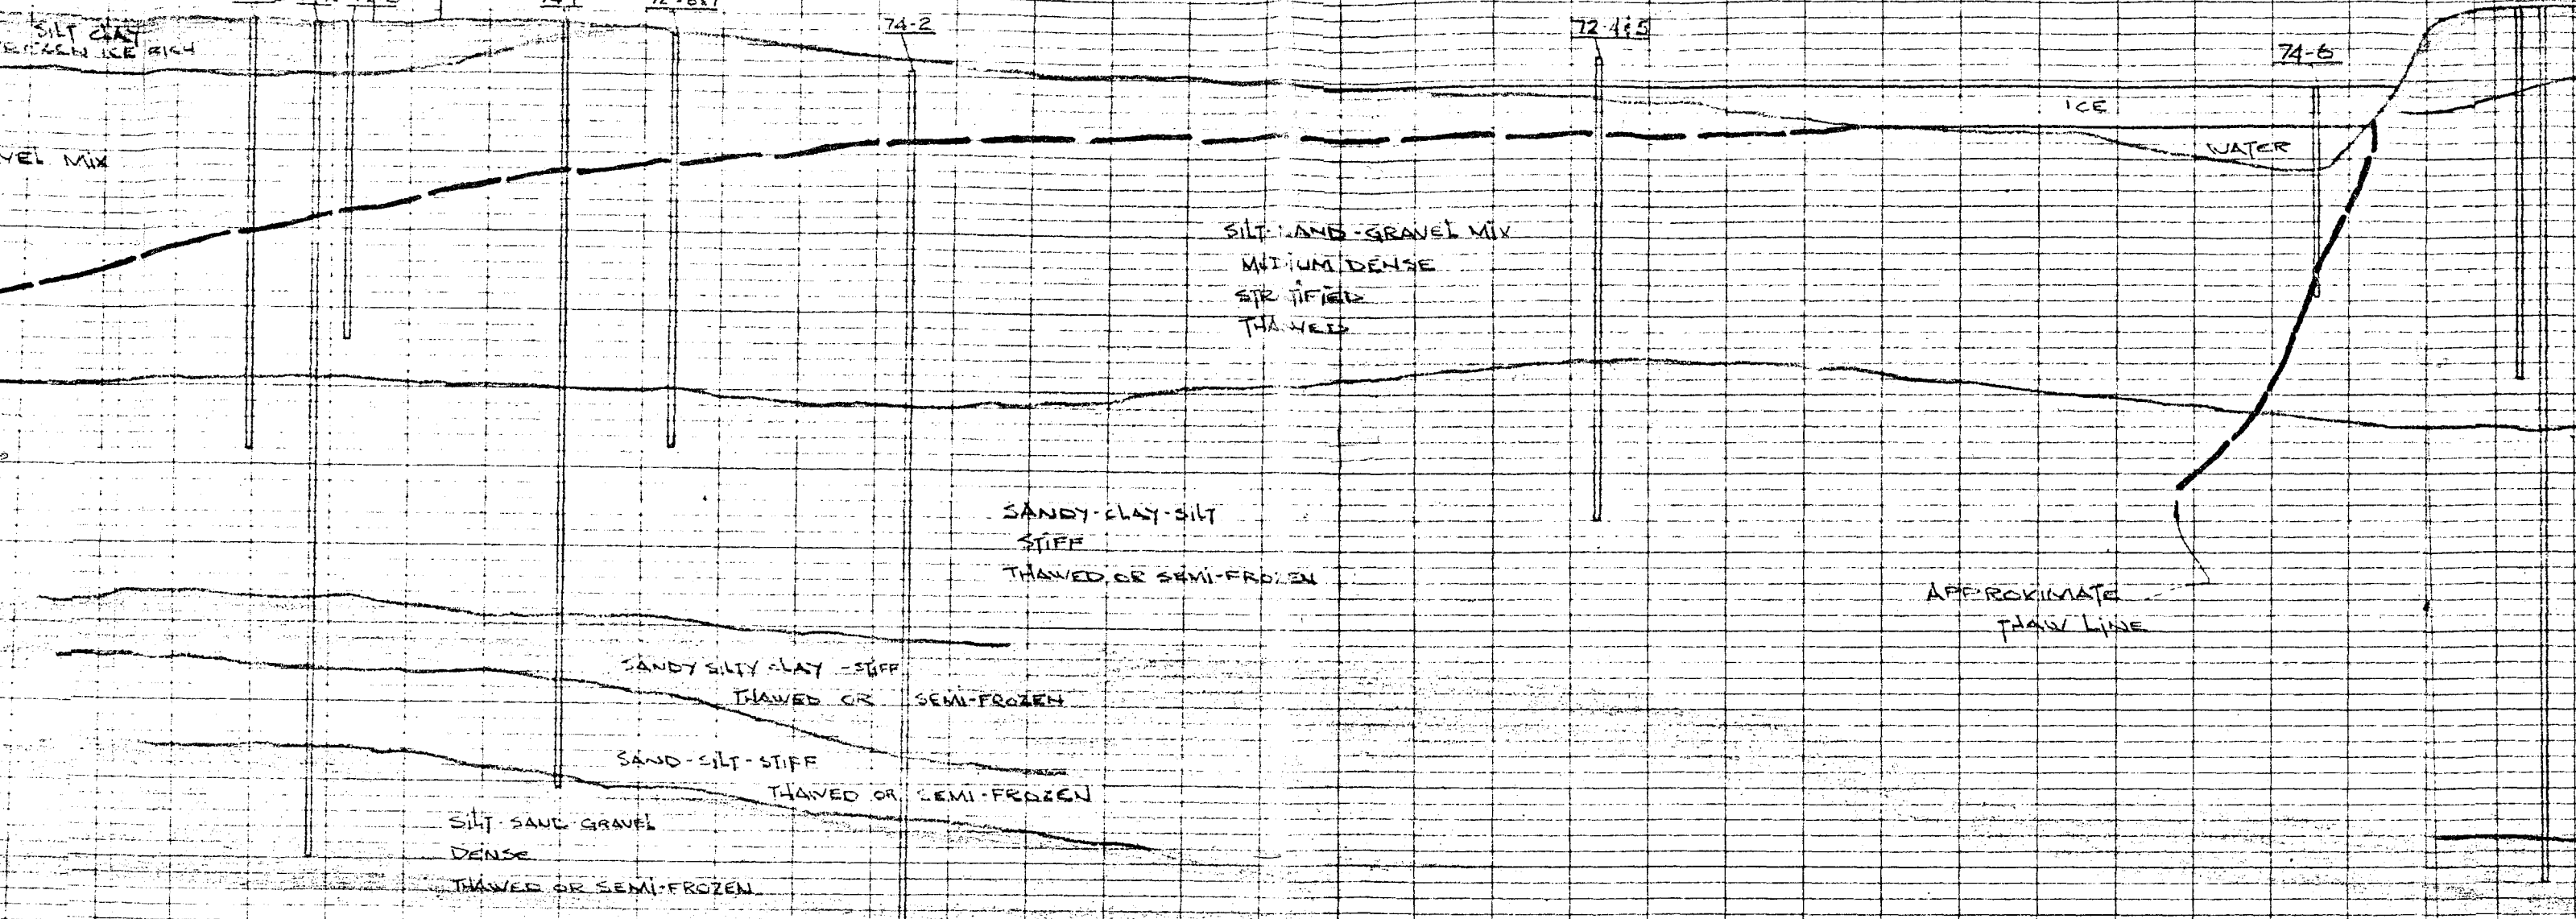 74-2
72-4&5
74-6
SILT CLAY
ICE RICH
ICE
WATER
VEL MIX
SILT- AND-GRAVEL MIX
M DIUM DENSE
STR TIFIED
THAWED
SANDY-CLAY-SILT
STIFF
THAWED OR SEMI-FROZEN
APPROXIMATE
THAW LINE
SANDY SILTY CLAY -STIFF
THAWED OR SEMI-FROZEN
SAND-SILT-STIFF
THAWED OR SEMI-FROZEN
SILT-SAND-GRAVEL
DENSE
THAWED OR SEMI-FROZEN